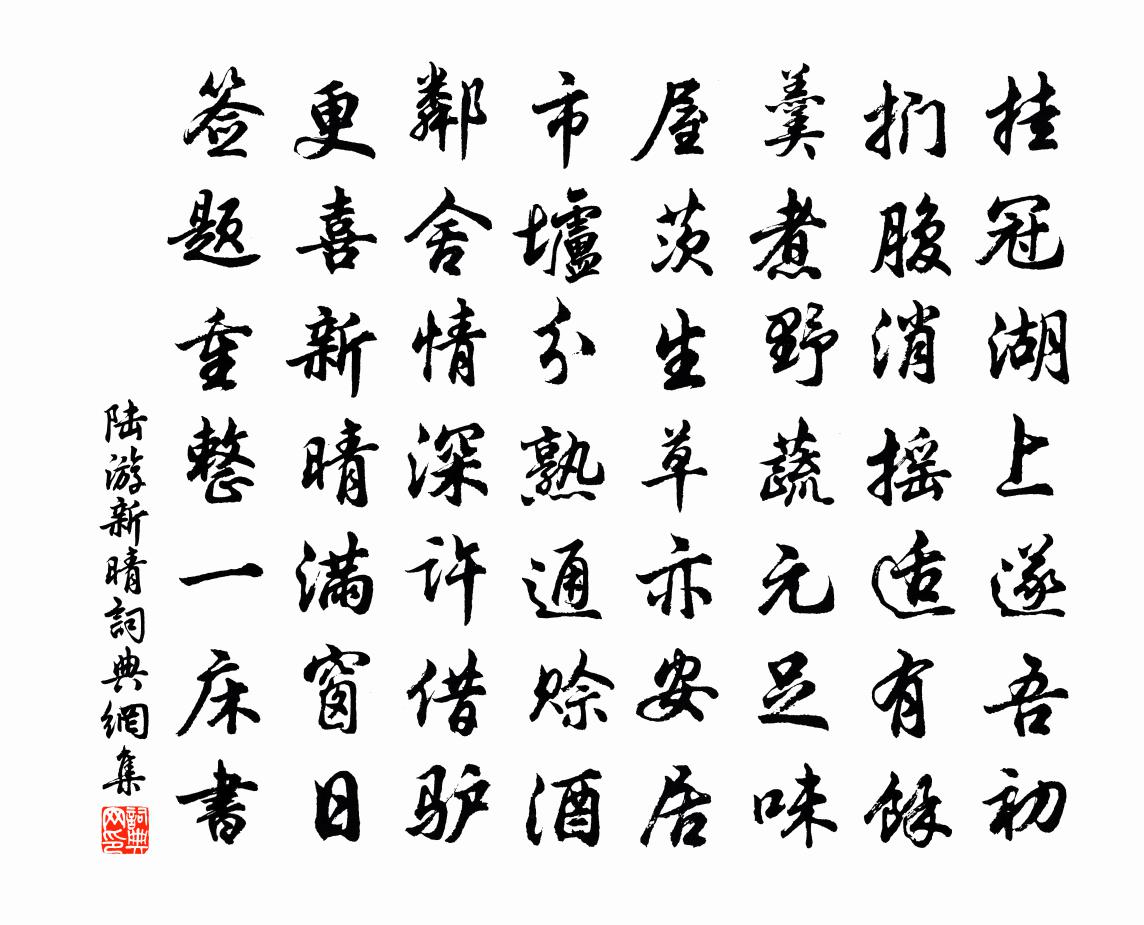 挂冠湖上遂吾初
捫腹消摇适有餘
羹煮野蔬元足味
屋茨生草亦安居
市壚分熟通赊酒
鄰舍情深许借驴
更喜新晴满窗日
签题重整一床書
陆游新晴詞典網集
詞典网印